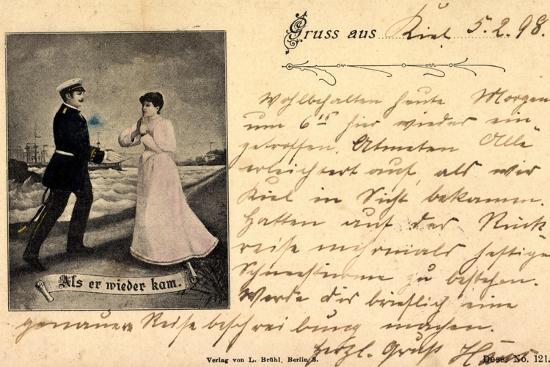 Gruss aus Kiel 5.2.98.
Wohlbehalten heute Morgen
um 6 15 hier wieder ein-
getroffen. Atmeten Alle
erleichtert auf, als wir
Kiel in Sicht bekamen.
Hatten auf der Rück-
reise mehrmals heftige
Schneestürme zu bestehen.
Werde dir brieflich eine
genauere Reisebeschreibung machen.
herzl. Gruß
Als er wieder kam.
Verlag von L. Brühl, Berlin S.
Dess. No. 121.